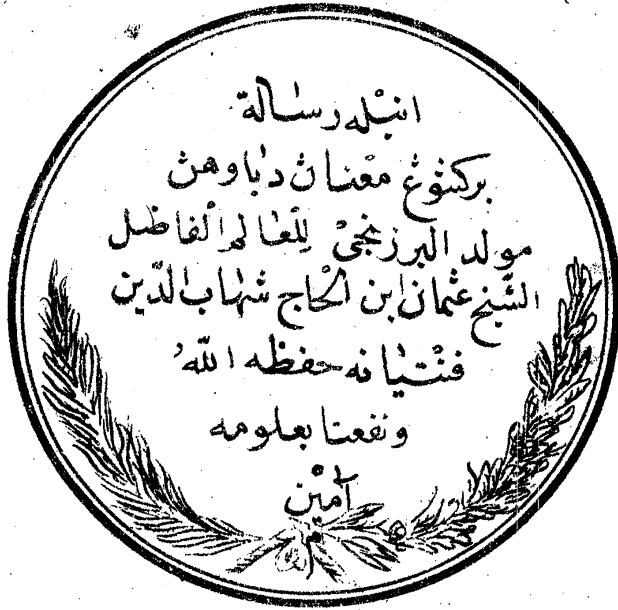 انيله رسالة
بركنوڠ معنان دباوهن
مولد البرزنجيْ لِلْعَالم الْفاضل
الشّيخ عثمان ابن الْحَاج شهاب الدّين
فنتيانه حفظه اللّٰه
ونفعنا بعلومه
آمين
م